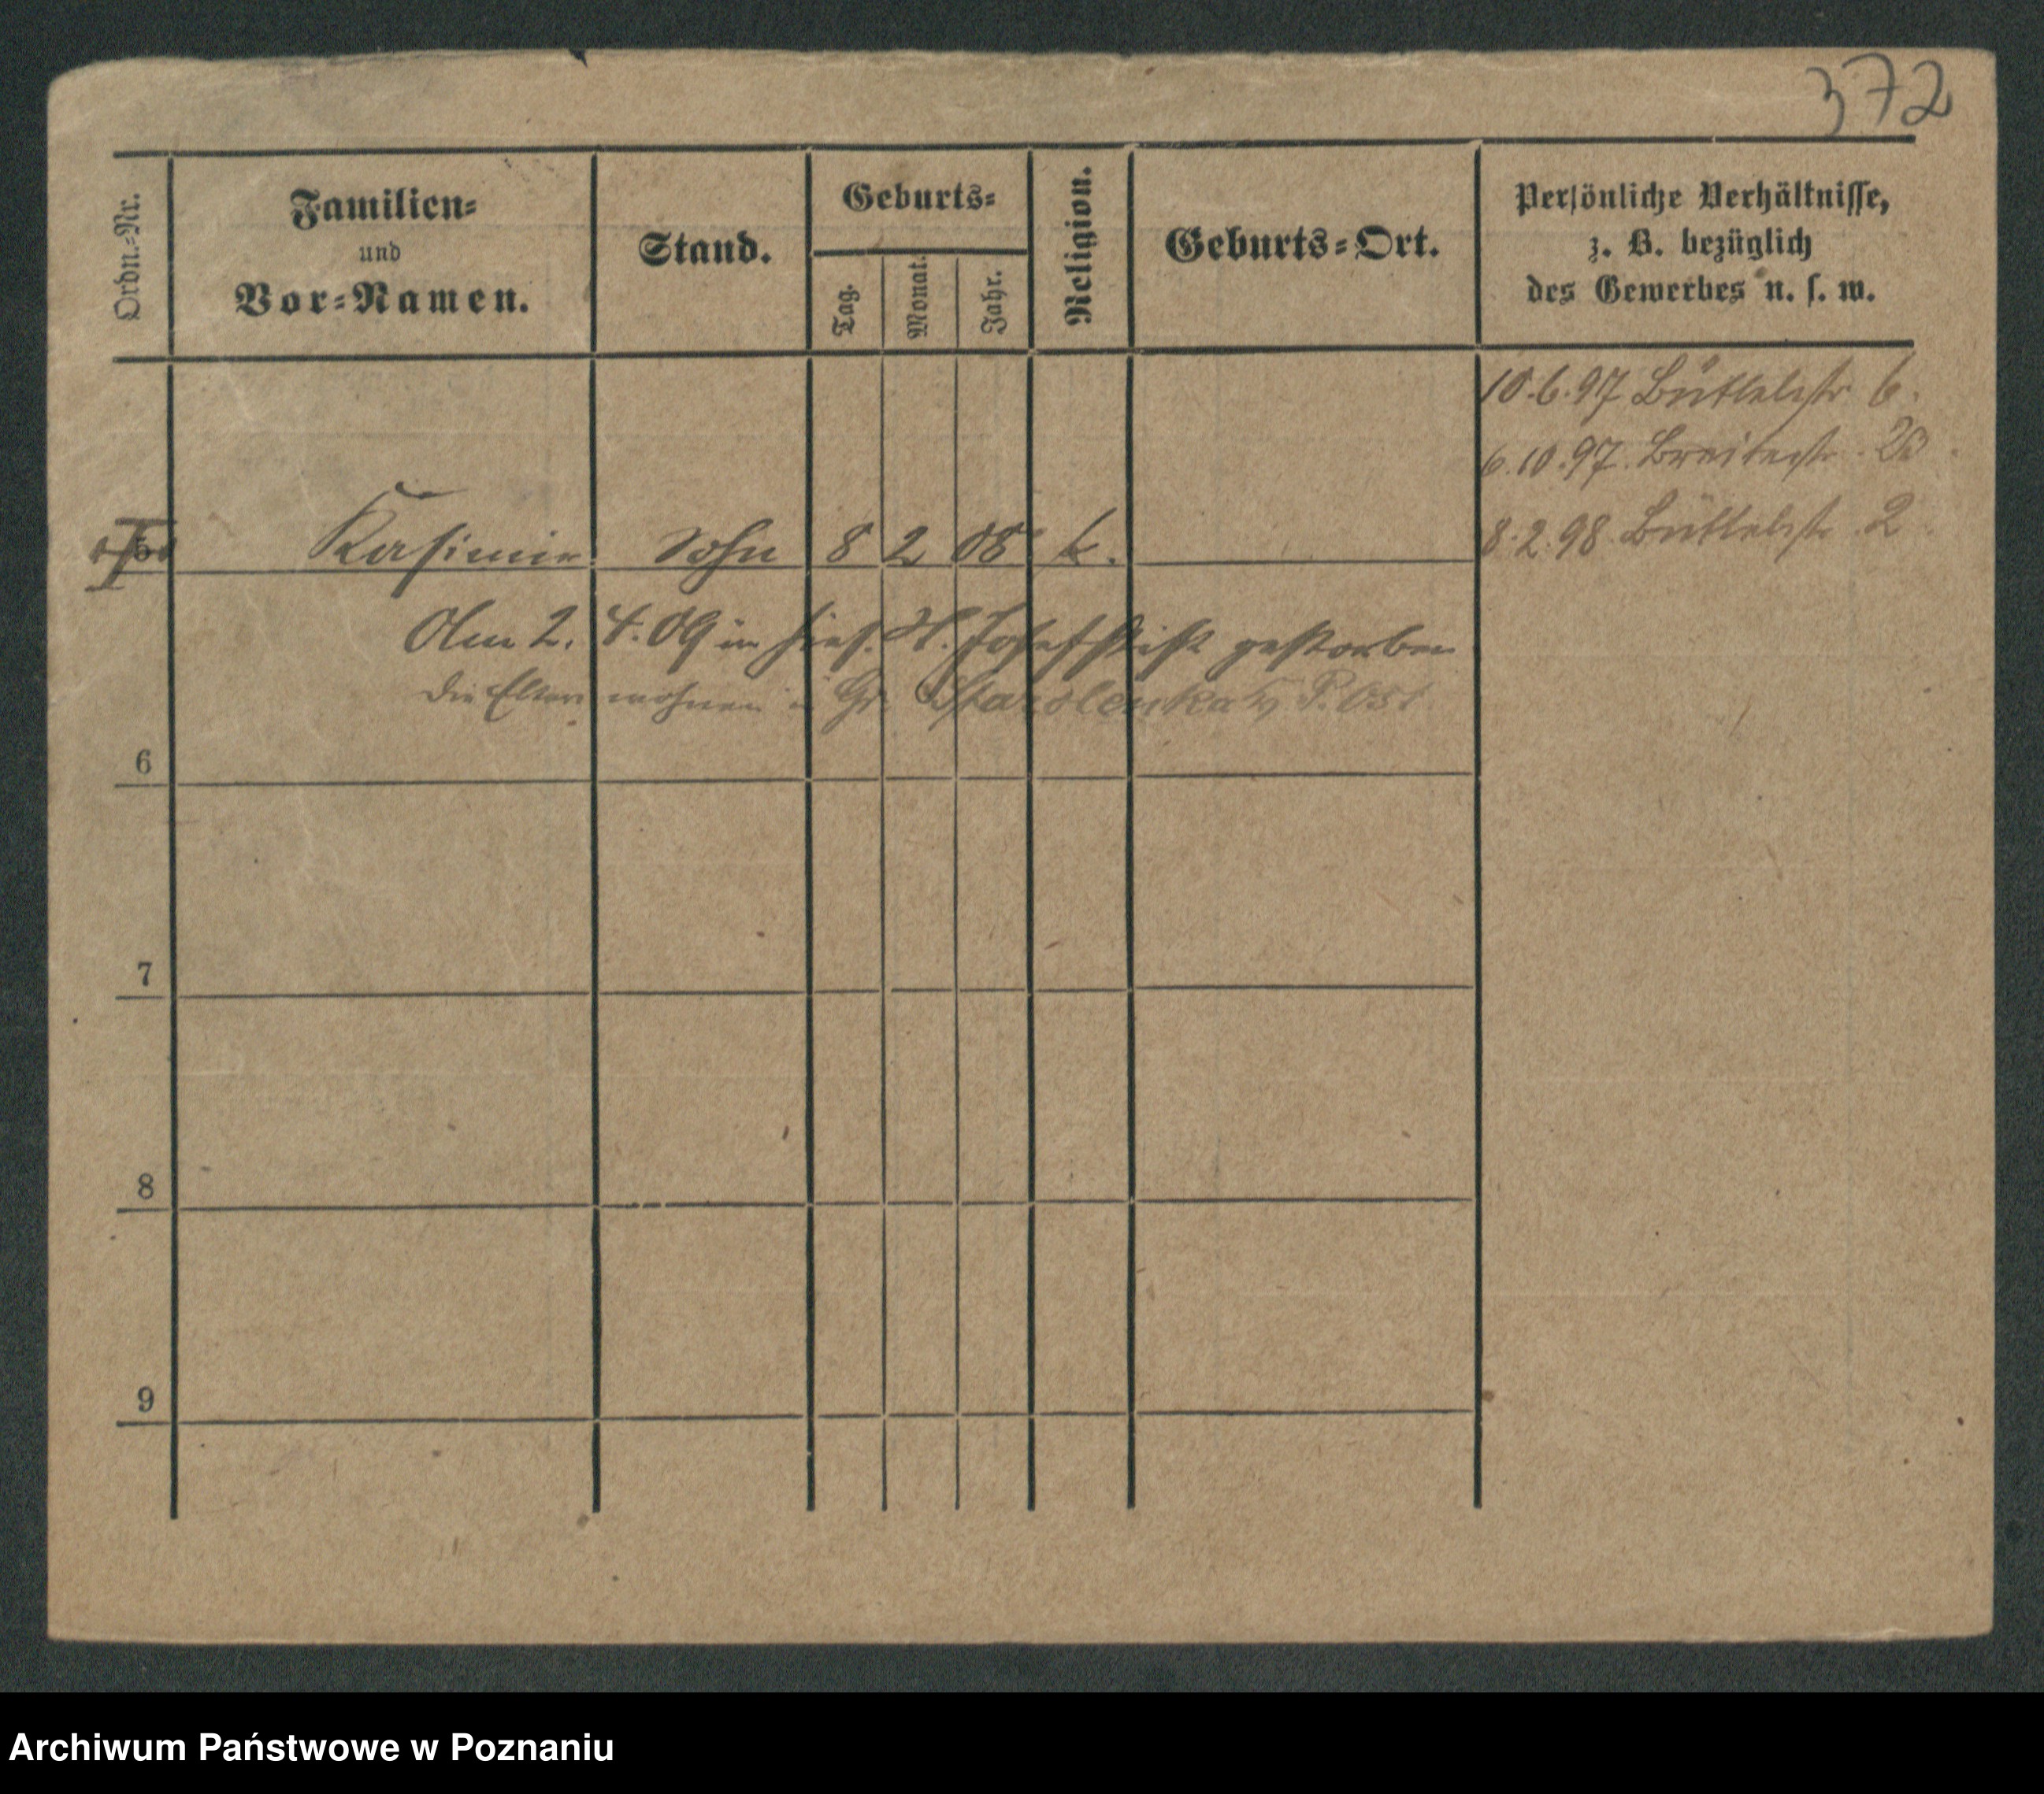 372
Ordn.-Nr.
Familien-
und
Vor-Namen.
Stand.
Geburts-
Tag.
Monat.
Jahr.
Religion.
Geburts-Ort.
Persönliche Verhältnisse,
z. B. bezüglich
des Gewerbes u. s. w.
10.6.97 Büttelstr 6.
6.10.97. Breitestr. 20
8.2.98. Büttelstr. 2
5 Kasimir Sohn 8 2 08 k.
Am 2. 4. 09 im hies. St. Josefstift gestorben
Die Eltern wohnen in Gr. Starolenka P. Ost
6
7
8
9
Archiwum Państwowe w Poznaniu